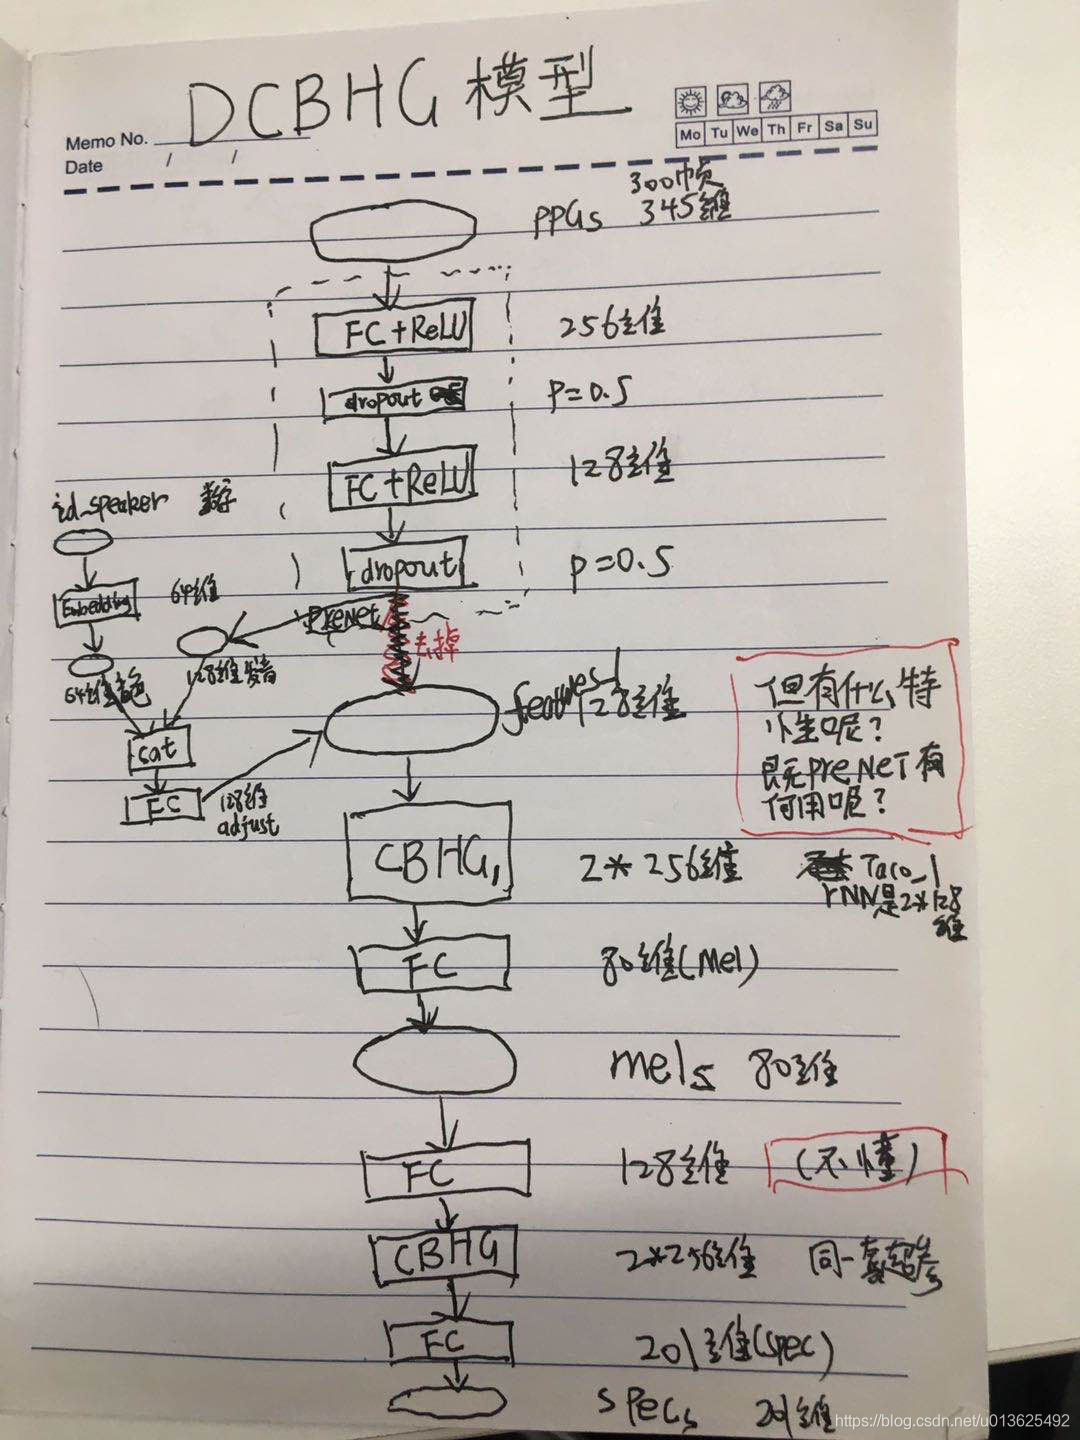 DCBHG 模型
Memo No.
Date / /
Mo Tu We Th Fr Sa Su
300帧
PPGs 345维
FC+ReLU 256维
dropout P=0.5
FC+ReLU 128维
id_speaker 数字
dropout P=0.5
Embedding 64维
PreNet
去掉
64维音色
128维发音
features_1
128维
cat
FC
128维
adjust
但有什么特
性呢?
既无PreNET有
何用呢?
CBHG1 2*256维
Taco_1
rNN是2*128
维
FC 80维(mel)
mels 80维
FC 128维 (不懂)
CBHG 2*256维 同一套超参
FC 201维(spec)
specs 201维
https://blog.csdn.net/u013625492